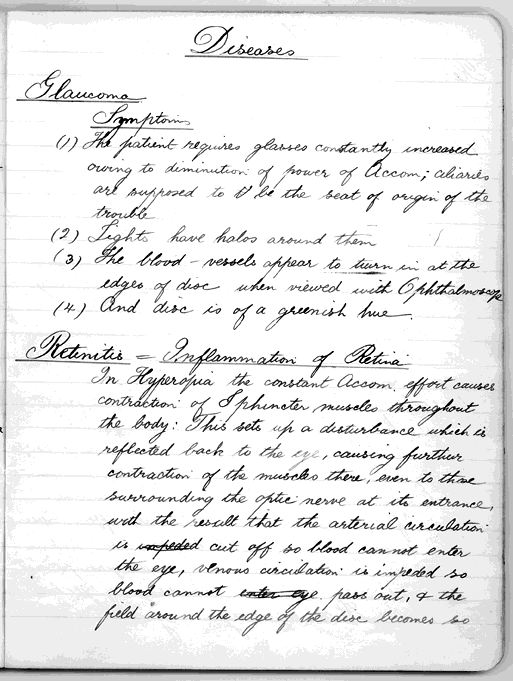 Diseases
Glaucoma
Symptoms
(1) The patient requires glasses constantly increased
owing to diminution of power of Accom; ciliaries
are supposed to be the seat of origin of the
trouble
(2) Lights have halos around them
(3) The blood-vessels appear to turn in at the
edges of disc when viewed with Ophthalmoscope
(4) And disc is of a greenish hue.
Retinitis = Inflammation of Retina
In Hyperopia the constant Accom. effort causes
contraction of Sphincter muscles throughout
the body: This sets up a disturbance which is
reflected back to the eye, causing further
contraction of the muscles there, even to those
surrounding the optic nerve at its entrance,
with the result that the arterial circulation
is impeded cut off so blood cannot enter
the eye, venous circulation is impeded so
blood cannot enter eye pass out, & the
field around the edge of the disc becomes so